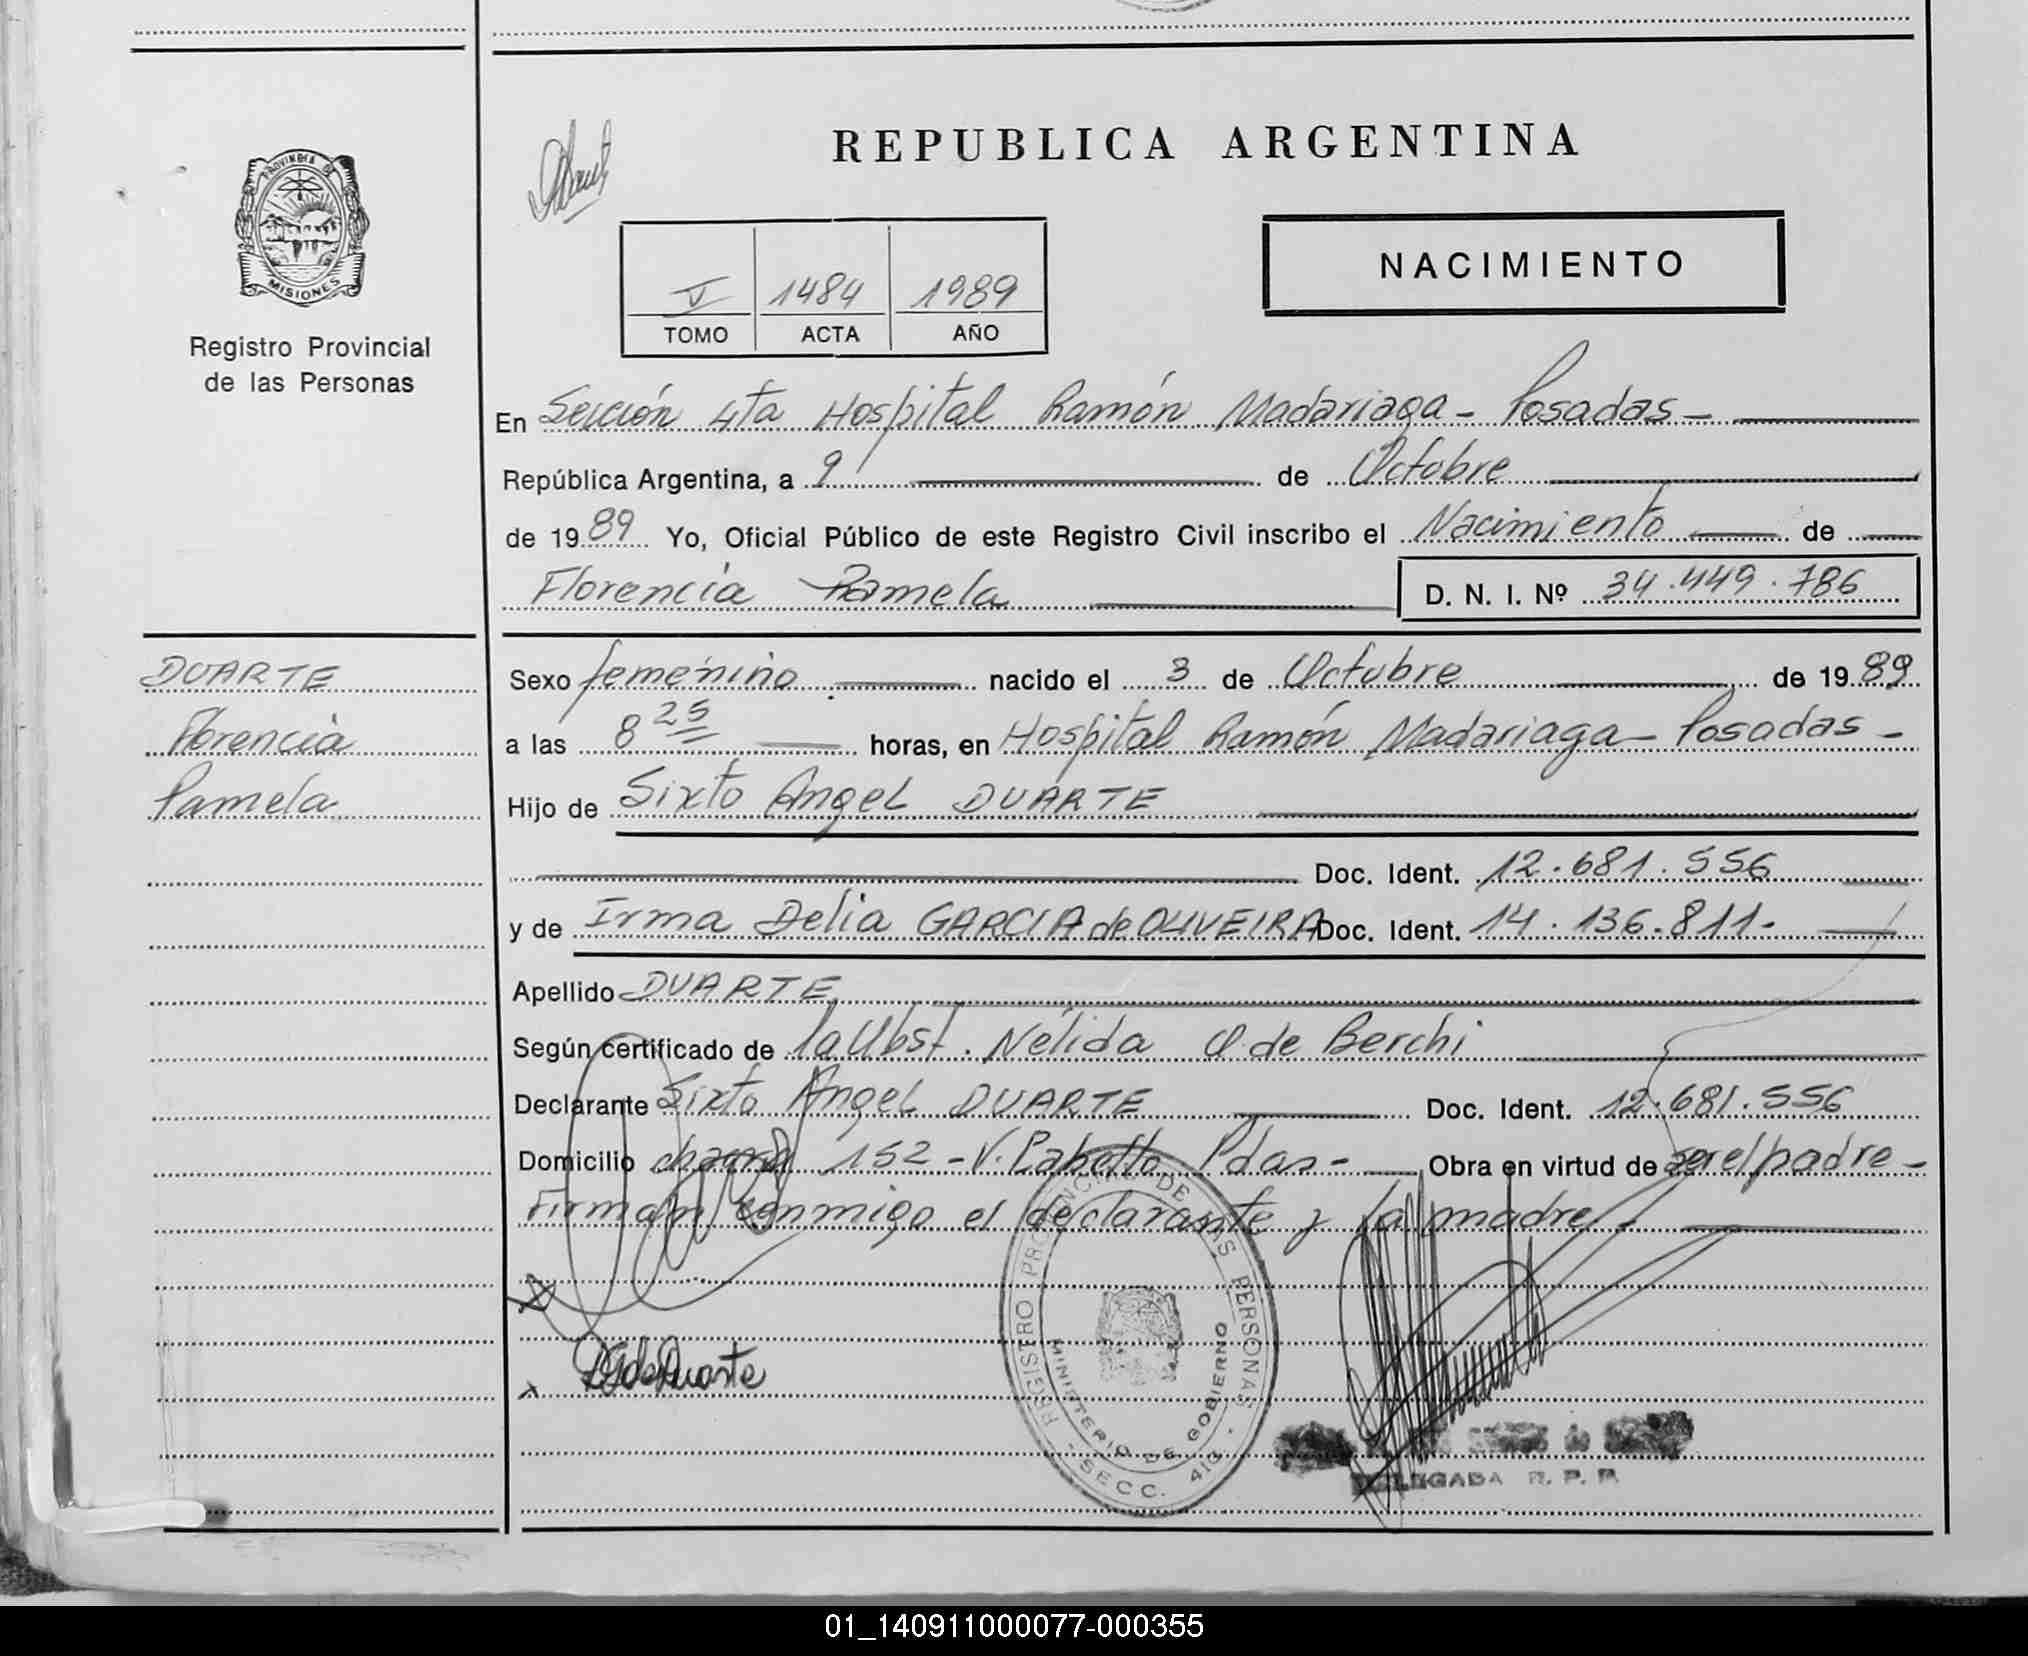 PROVINCIA DE
MISIONES
Registro Provincial
de las Personas
REPUBLICA ARGENTINA
NACIMIENTO
V 1484 1989
TOMO ACTA AÑO
En Sección 4ta Hospital Ramón Madariaga - Posadas -
República Argentina, a 9 de Octubre
de 1989 Yo, Oficial Público de este Registro Civil inscribo el Nacimiento de
Florencia Pamela D. N. I. Nº 34.449.786
DUARTE
Florencia
Pamela
Sexo femenino nacido el 3 de Octubre de 1989
a las 8 25 horas, en Hospital Ramón Madariaga - Posadas -
Hijo de Sixto Angel DUARTE
Doc. Ident. 12.681.556
y de Irma Delia GARCIA de OLIVEIRA Doc. Ident. 14.136.811.
Apellido DUARTE
Según certificado de la Obst. Nélida O de Berchi
Declarante Sixto Angel DUARTE Doc. Ident. 12.681.556
Domicilio 152 - V. Pdas - Obra en virtud de ser el padre -
Firman conmigo el declarante y la madre -
x
x DG de Duarte
REGISTRO PROVINCIAL DE LAS PERSONAS
MINISTERIO DE GOBIERNO
- SECC. 4ta -
DELEGADA R. P. P.
01_140911000077-000355